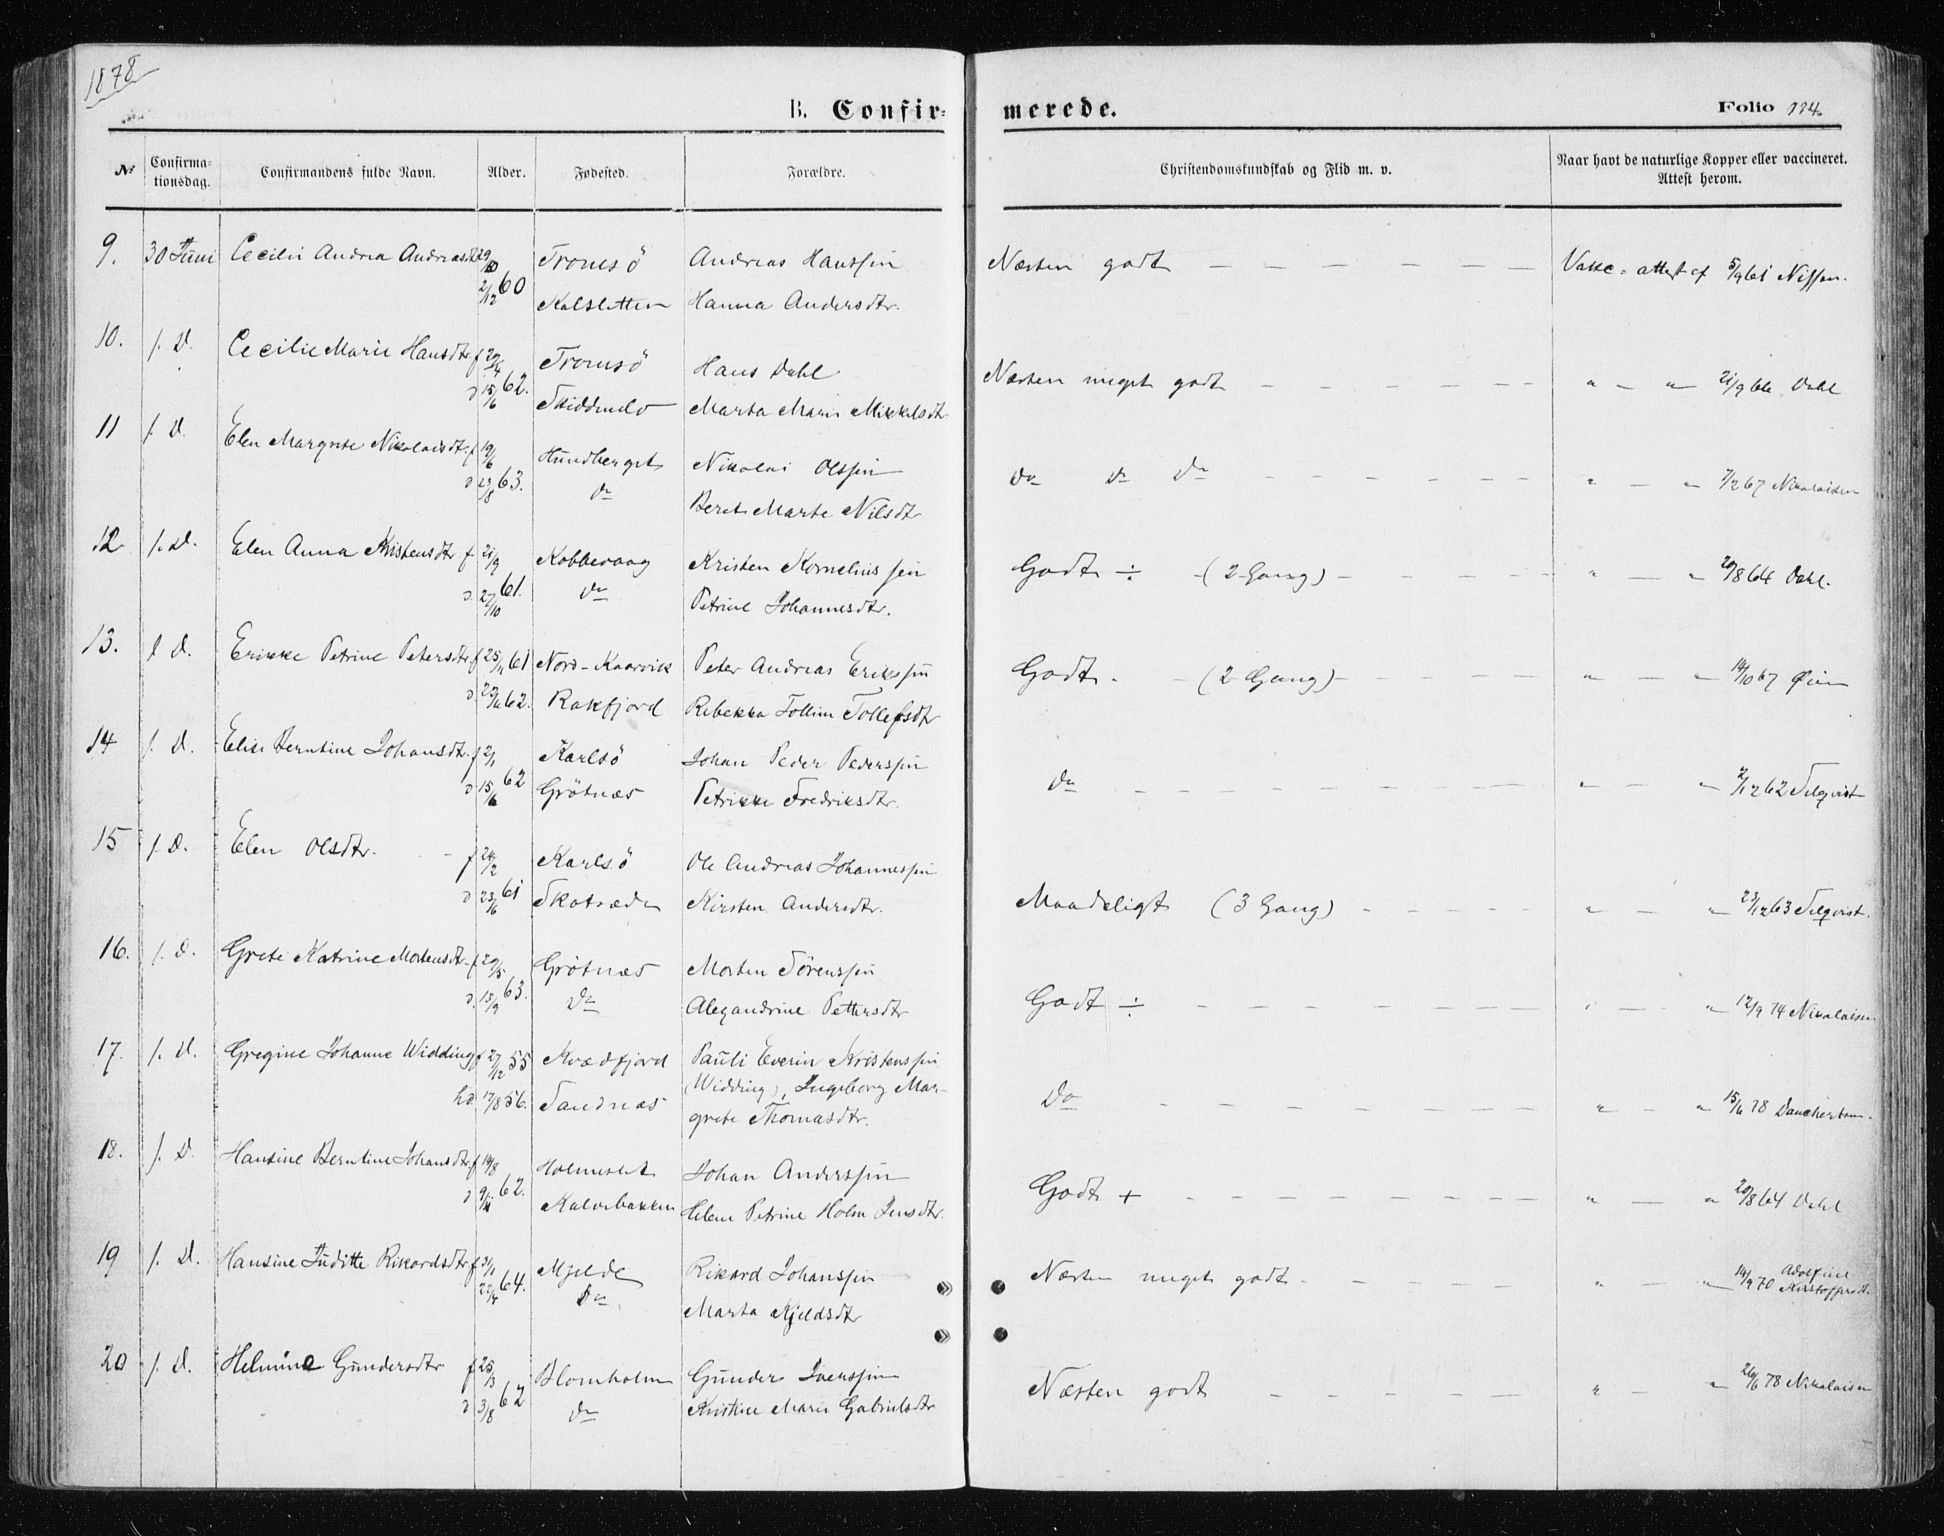 1878
B. Confir-
merede.
Folio 124.
No
Confirma-
tionsdag.
Confirmandens fulde Navn.
Alder.
Fødested.
Forældre.
Christendomskundskab og Flid m. v.
Naar havt de naturlige Kopper eller vaccineret.
Attest herom.
9. 30 Juni Cecilie Andrea Tromsö Andreas Hanssen Næsten godt Vakc. attest af 5/9 61 Nissen.
2/12 60 Hanna Andersdtr.
10. s. D. Cecilie Marie Hansdtr. f 29/4 Tromsö Hans Dahl Næsten meget godt " " 21/9 66 Dahl
d 15/6 62. Marta Marie Mikkelsdtr
11 s. D. Elen Margrete Nikolaisdtr. f 19/6 Hundberget Nikolai Olssen Do Do Do " " 7/2 67 Nikolaisen
d 23/8 63. Do Berit Marte Nilsdtr
12 s. D. Elen Anna Kristensdtr f 21/9 Kobbevaag Kristen Kornelius sen Godt ÷ (2 Gang) " " 20/8 64 Dahl.
d. 27/10 61. Do Petrine Johannesdtr.
13. s. D. Erikke Petrine Petersdtr. f 25/11 61 Nord-Kaarvik Peter Andreas Erikssen Godt. (2 Gang) " " 14/10 67 Øien
62. Rakfjord Rebekka Tollefsdtr
14 s. D. Elise Berntine Johansdtr. f 2/1 Karlsö Johan Peder Pederssen Do " " 2/12 62 Selqvist
d 15/6 62 Grötnæs Petrikke Fredriksdtr.
15 s. D. Elen Olsdtr. f 24/2 Karlsö Ole Andreas Johannessen
d 23/6 61 Kirsten Andersdtr. Maadeligt (3 Gang) " " 23/12 63 Selqvist.
16. s. D. Grete Katrine Mortensdtr. f 20/5 Grötnæs Morten Sörenssen
d. 13/9 63. Do Alexandrine Pettersdtr Godt ÷ " " 12/9 74 Nikolaisen
17. s. D. Gregine Johanne Widding f 27/12 55 Kvædfjord Pauli Everin Kristenssen
hd. 17/8 56. Sandnæs (Widding), Ingeborg Mar- Do " " 15/6 78
grete Thomasdtr.
18. s. D. Hansine Berntine Johansdtr. f 14/8 Holmeslet Johan Anderssen
62. Kalvebakken Helene Petrine Holm Jensdtr. Godt + " " 20/8 64 Dahl
19 s. D. Hansine Juditte Rikardsdtr. f 31/1 Mjelde Rikard Johanssen Næsten meget godt. " " 14/9 70 Adolfine
64. Do Marta Kjeldsdtr
20 s. D. Helmine Gundersdtr f 25/3 Blomholm Gunder Iverssen Næsten godt " " 26/6 78 Nikolaisen
d 3/8 62 Do Kristine Marie Gabrielsdtr